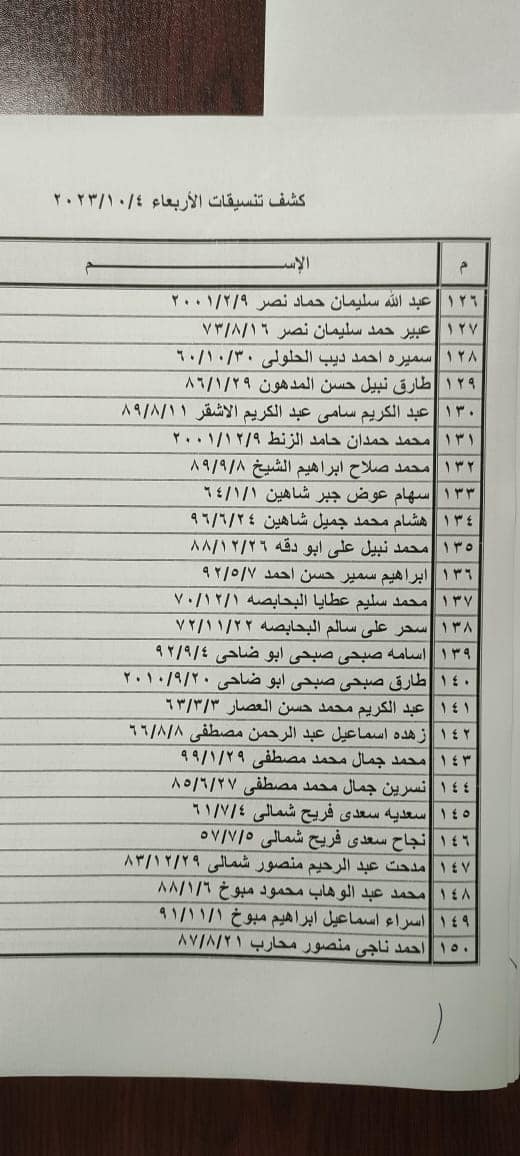 كشف تنسيقات الأربعاء ٢٠٢٣/١٠/٤
م الإســـــــــم
١٢٦ عبد الله سليمان حماد نصر ٢٠٠١/٢/٩
١٢٧ عبير حمد سليمان نصر ٧٣/٨/١٦
١٢٨ سميره احمد ديب الحلولى ٦٠/١٠/٣٠
١٢٩ طارق نبيل حسن المدهون ٨٦/١/٢٩
١٣٠ عبد الكريم سامى عبد الكريم الاشقر ٨٩/٨/١١
١٣١ محمد حمدان حامد الزنط ٢٠٠١/١٢/٩
١٣٢ محمد صلاح ابراهيم الشيخ ٨٩/٩/٨
١٣٣ سهام عوض جبر شاهين ٦٤/١/١
١٣٤ هشام محمد جميل شاهين ٩٦/٦/٢٤
١٣٥ محمد نبيل على ابو دقه ٨٨/١٢/٢٦
١٣٦ ابراهيم سمير حسن احمد ٩٢/٥/٧
١٣٧ محمد سليم عطايا البحابصه ٧٠/١٢/١
١٣٨ سحر على سالم البحابصه ٧٢/١١/٢٢
١٣٩ اسامه صبحى صبحى ابو ضاحى ٩٢/٩/٤
١٤٠ طارق صبحى صبحى ابو ضاحى ٢٠١٠/٩/٢٠
١٤١ عبد الكريم محمد حسن العصار ٦٣/٣/٣
١٤٢ زهده اسماعيل عبد الرحمن مصطفى ٦٦/٨/٨
١٤٣ محمد جمال محمد مصطفى ٩٩/١/٢٩
١٤٤ نسرين جمال محمد مصطفى ٨٥/٦/٢٧
١٤٥ سعديه سعدى فريح شمالى ٦١/٧/٤
١٤٦ نجاح سعدى فريح شمالى ٥٧/٧/٥
١٤٧ مدحت عبد الرحيم منصور شمالى ٨٣/١٢/٢٩
١٤٨ محمد عبد الوهاب محمود مبوخ ٨٨/١/٦
١٤٩ اسراء اسماعيل ابراهيم مبوخ ٩١/١١/١
١٥٠ احمد ناجى منصور محارب ٨٧/٨/٢١